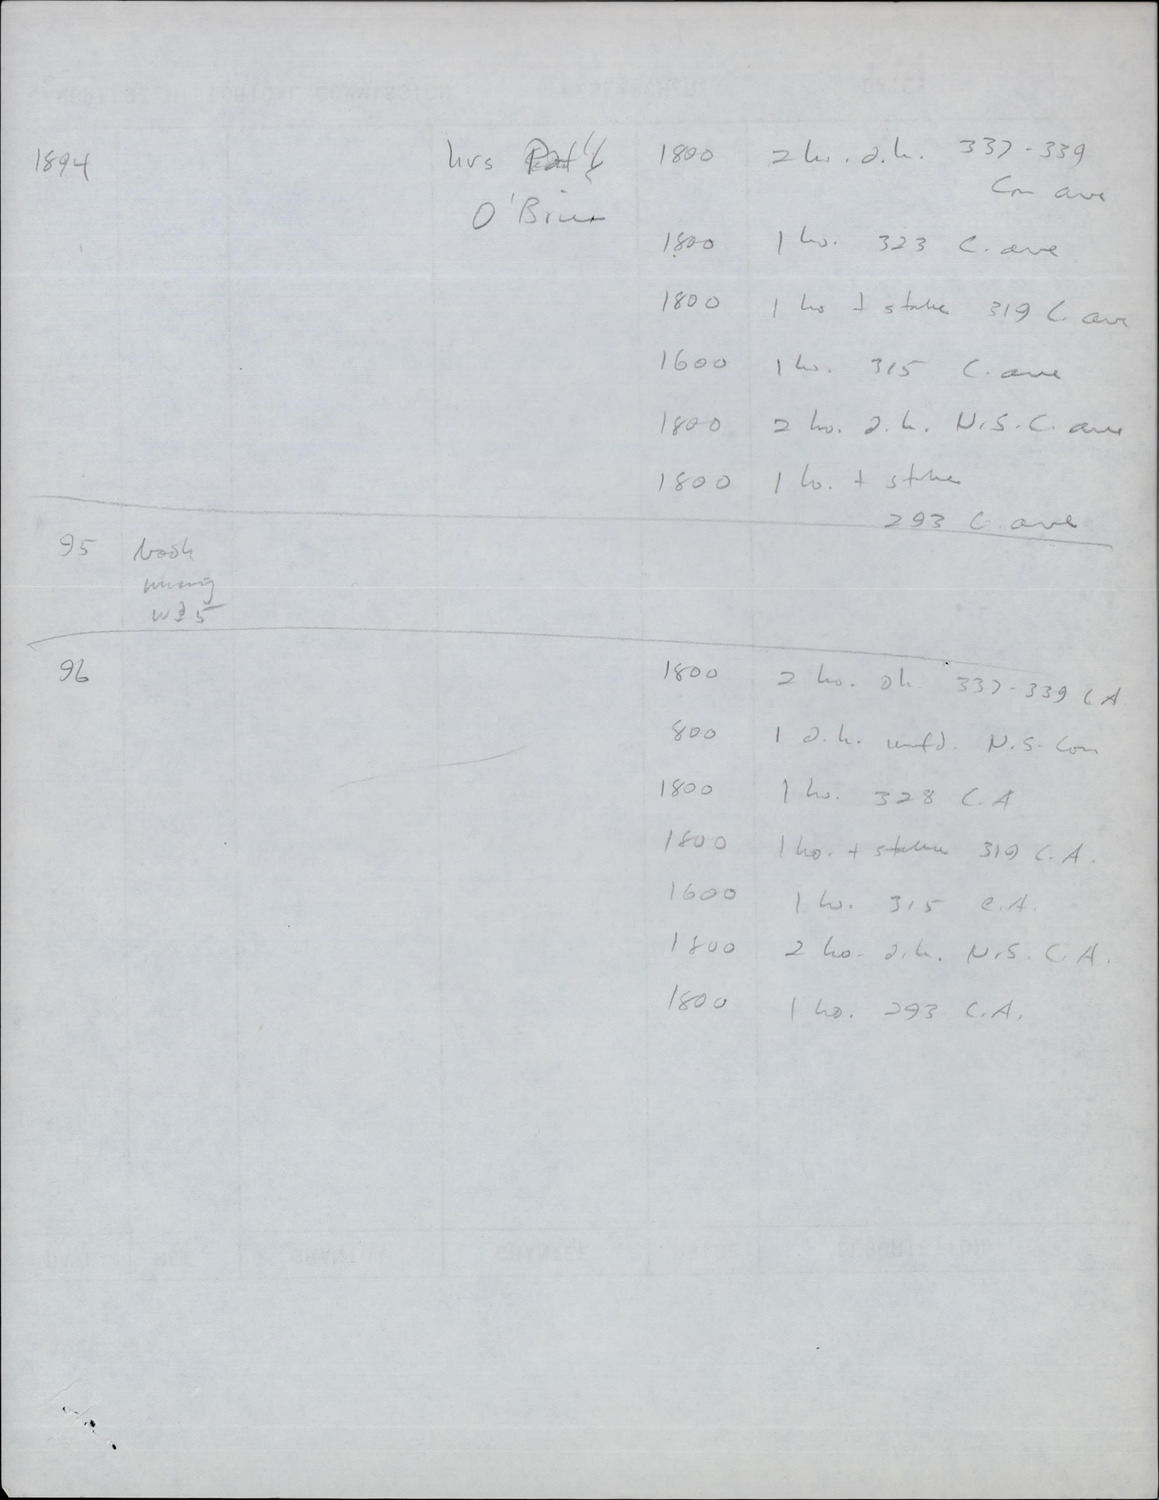 1894 hrs Pat'k 1800 2 ho. d.h. 337-339
O'Brien Con ave
1800 1 ho. 323 C. ave
1800 1 ho + stable 319 C. ave
1600 1 ho. 315 C. ave
1800 2 ho. d.h. N.S. C. ave
1800 1 ho. + stable
293 C. ave
95 book
missing
wd 5
96 1800 2 ho. dh 337-339 CA
800 1 d.h. unfd. N.S. Con
1800 1 ho. 328 C.A
1800 1 ho. + stable 319 C.A.
1600 1 ho. 315 C.A.
1800 2 ho. d.h. N.S. C.A.
1800 1 ho. 293 C.A.